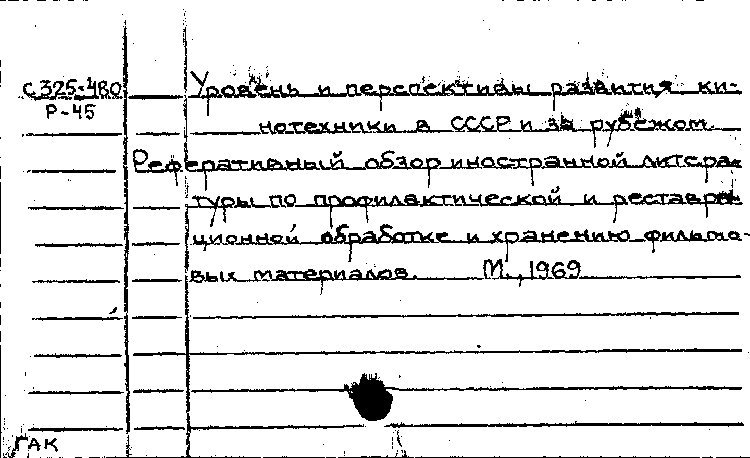 С325-480
Р-45
Уровень и перспективы развития ки-
нотехники в СССР и за рубежом.
Реферативный обзор иностранной литера-
туры по профилактической и реставра-
ционной обработке и хранению фильмо-
вых материалов. М., 1969
ГАК